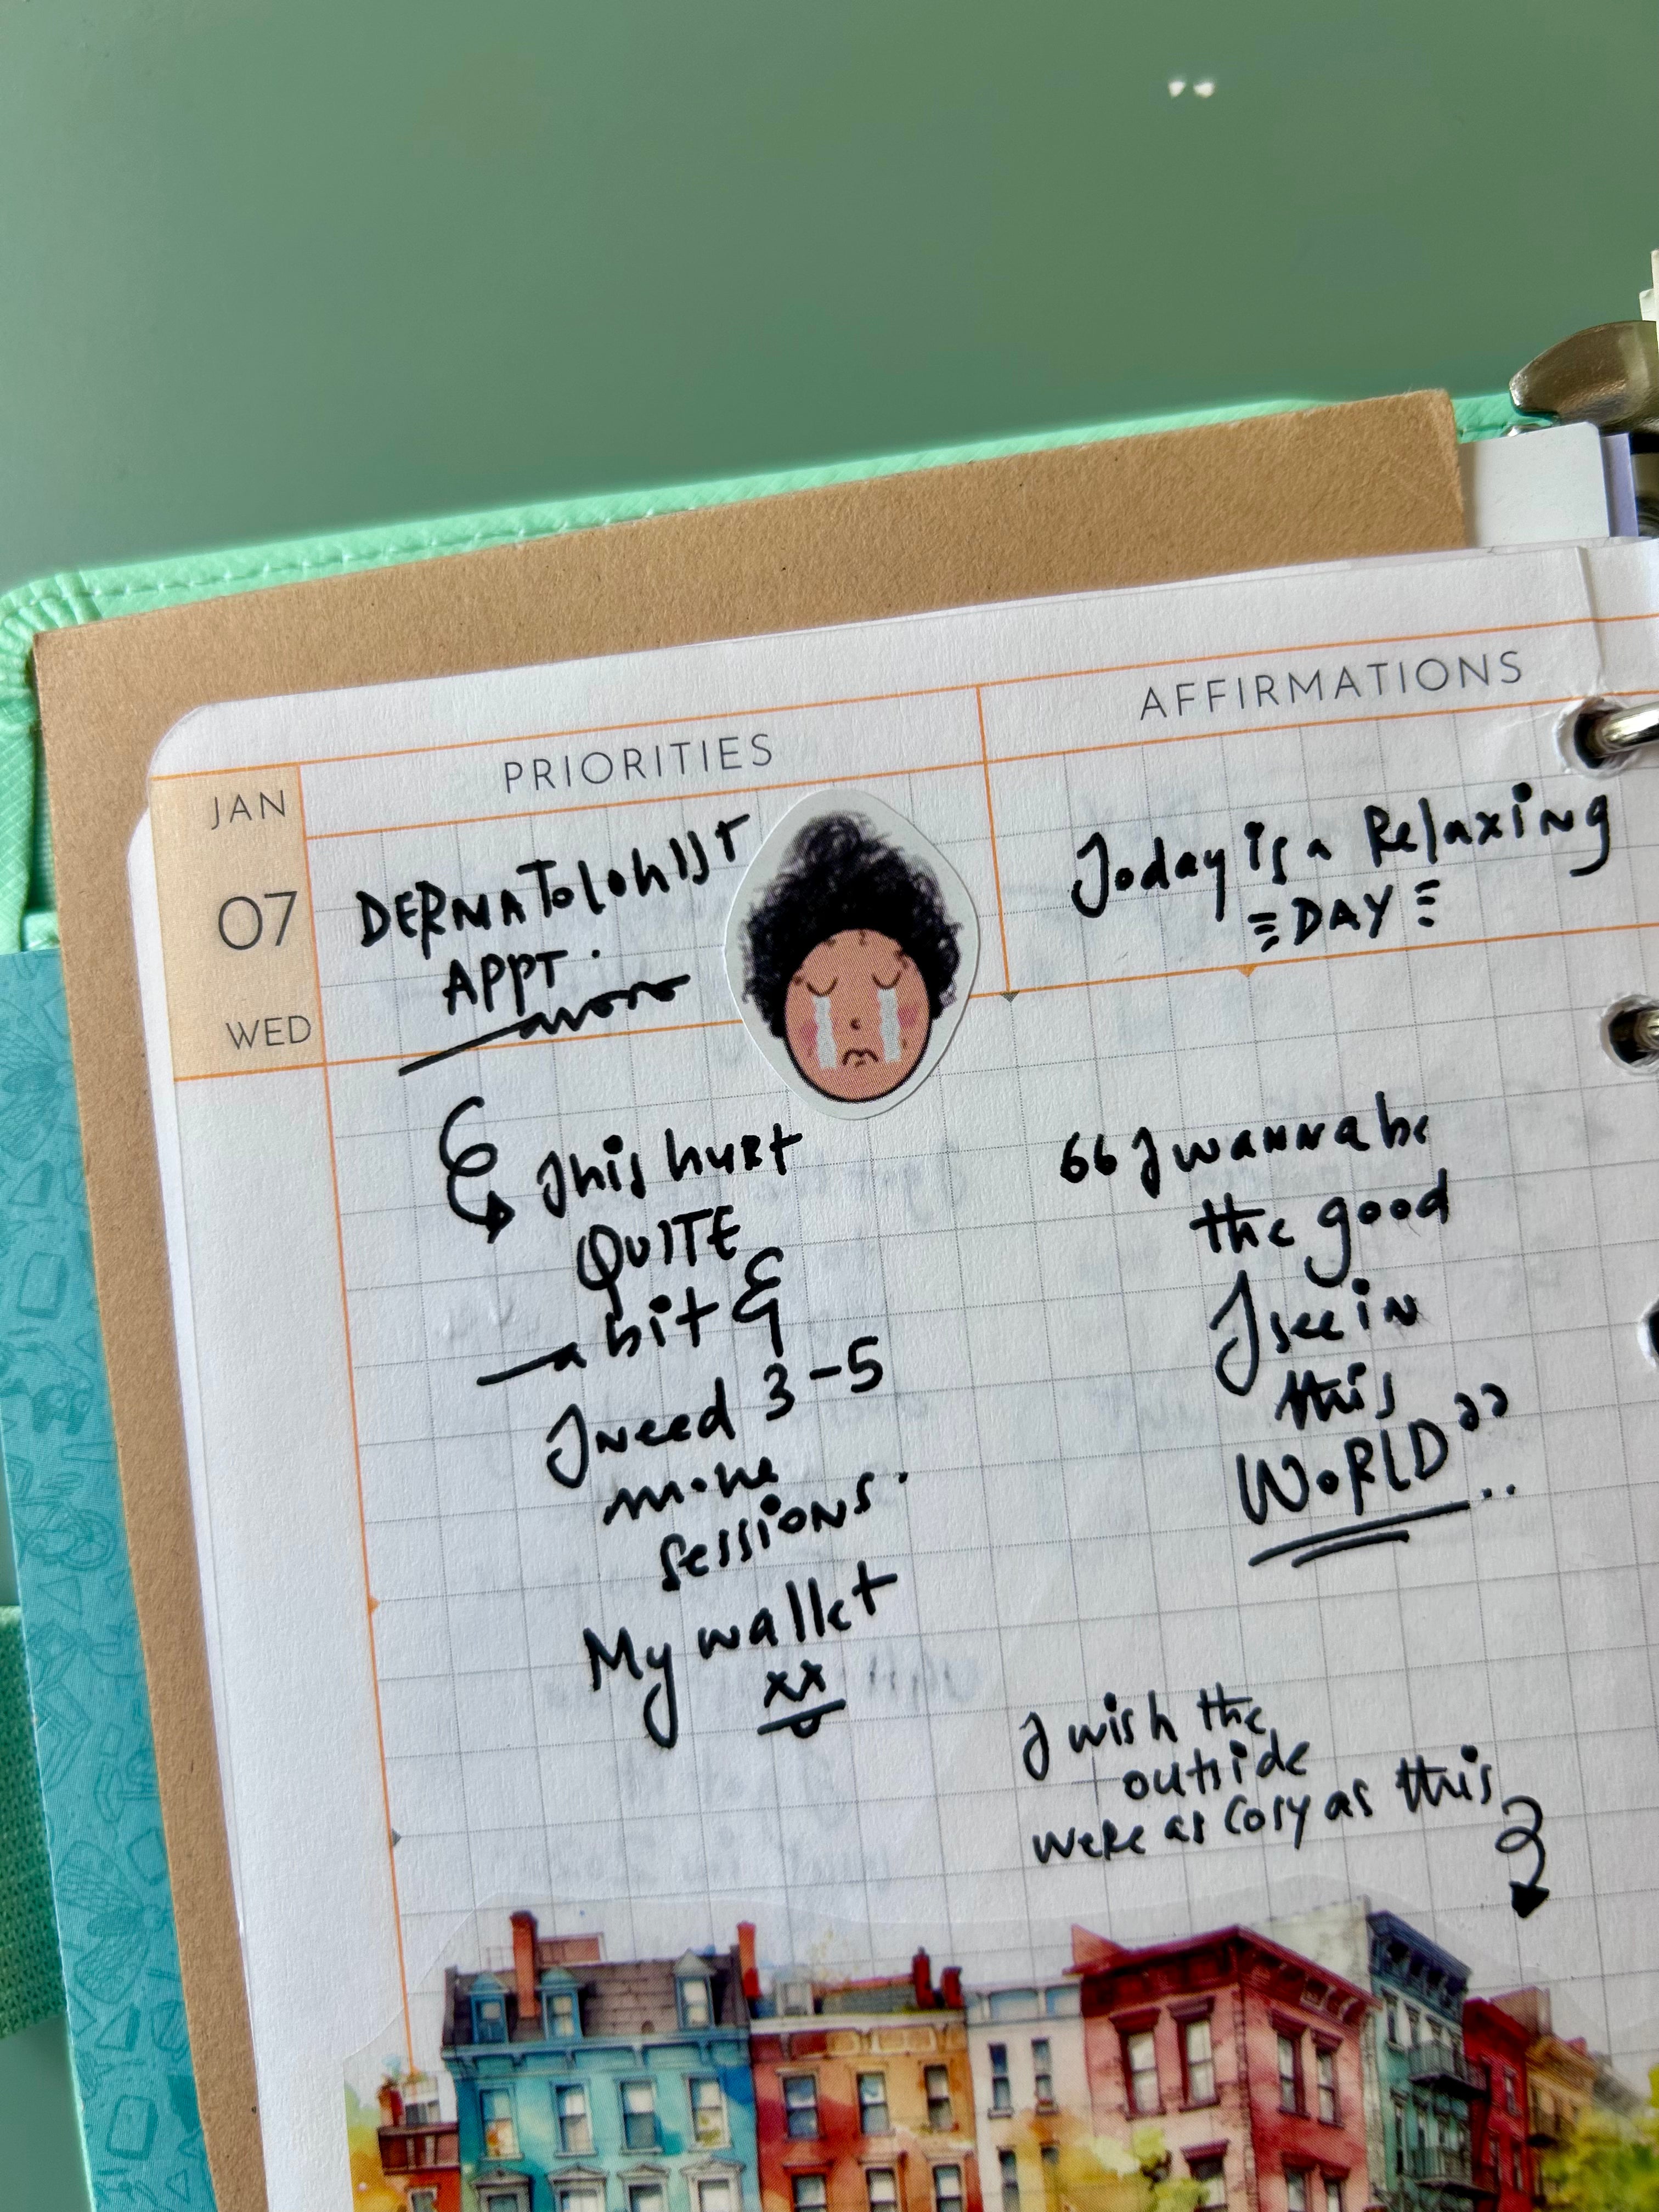 PRIORITIES
AFFIRMATIONS
JAN
07
WED
DERMATOLOHIST
APPT.
Today is a Relaxing
DAY
This hurt
QUITE
a bit &
I need 3-5
more
sessions.
My wallet
xx
"I wanna be
the good
I see in
this
WORLD"..
I wish the
outside
were as cosy as this